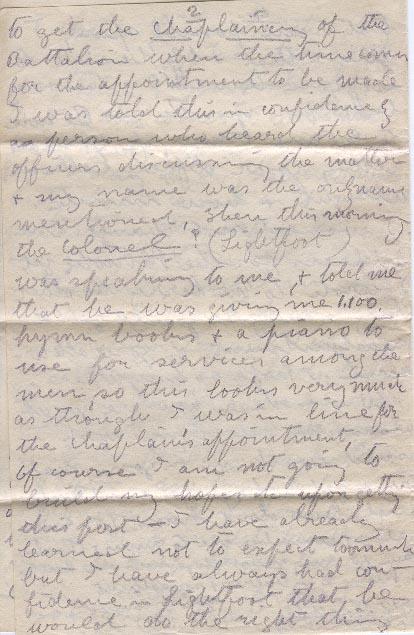 2
to get the chaplaincy of the
Battalion when the time comes
for the appointment to be made
I was told this in confidence by
a person who heard the
officers discussing the matter
& my name was the only name
mentioned, then this morning
the Colonel ? (Lightfoot)
was speaking to me, & told me
that he was giving me 1,100
hymn books & a piano to
use for services among the
men, so this looks very much
as though I was in line for
the chaplain's appointment,
Of course I am not going to
build my hopes upon getting
this post - I have already
learned not to expect too much
but I have always had con-
fidence in Lightfoot that he
would do the right thing